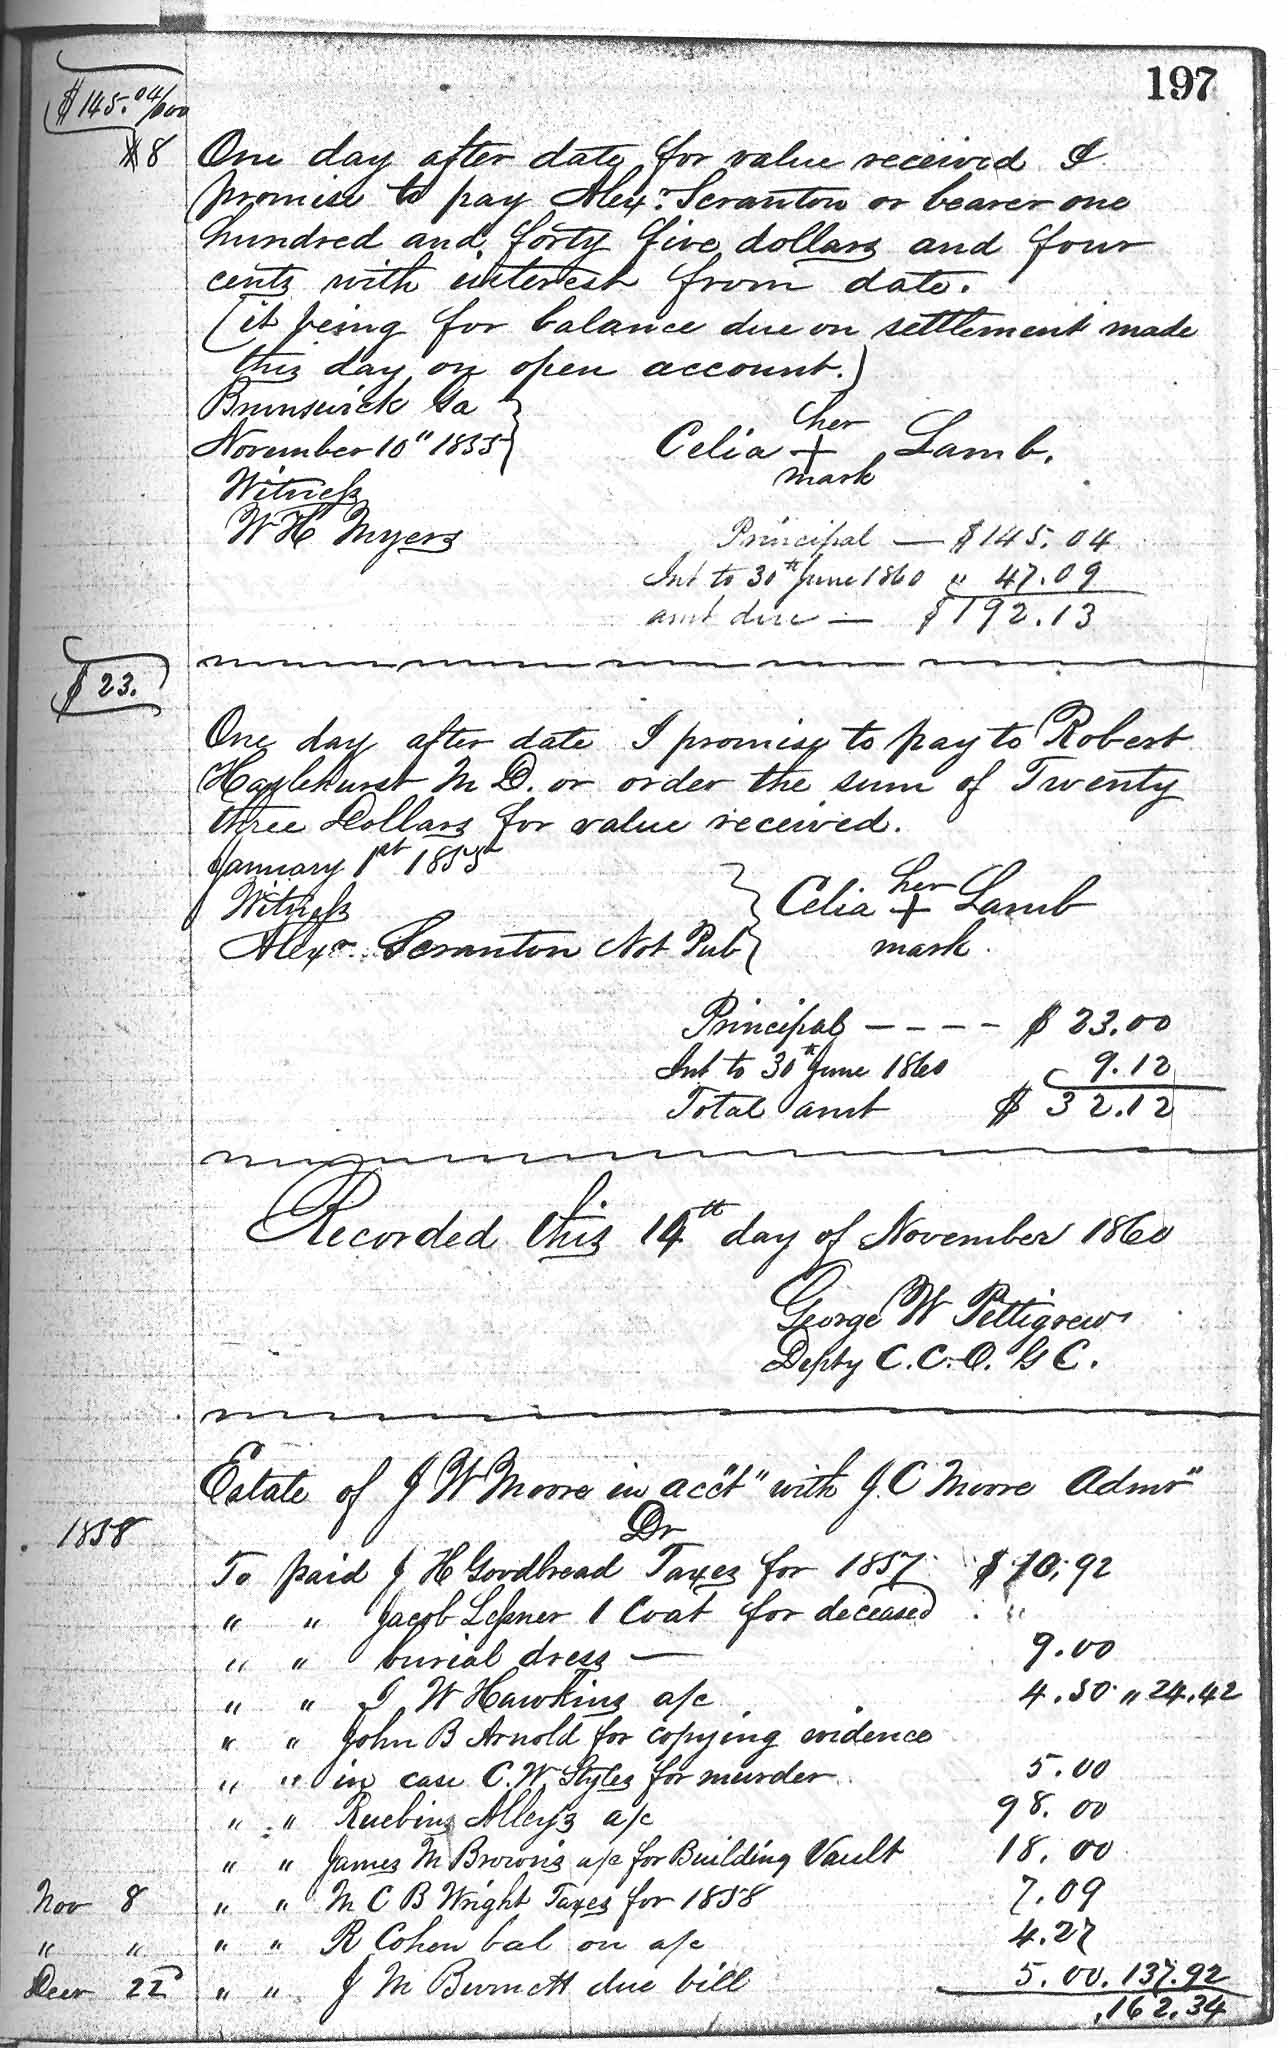 197
$145.04/000
$8
One day after date for value received I
promise to pay Alexr. Scranton or bearer one
hundred and forty five dollars and four
cents with interest from date.
(it being for balance due on settlement made
this day on open account.)
Brunswick Ga
November 10" 1855
her
Celia + Lamb.
mark
Witness
W H Myers
Principal — $145.04
Int to 30th June 1860 " 47.09
amt due — $192.13
$23.
One day after date I promise to pay to Robert
Hazlehurst M D. or order the sum of Twenty
three Dollars for value received.
January 1st 1855
Witness
her
Celia + Lamb
mark
Alexr. Scranton Not Pub
Principal - - - - $23.00
Int to 30th June 1860 9.12
Total amt $32.12
Recorded this 14th day of November 1860
George W Pettigrew
Depty C.C.O. G C.
Estate of J W Moore in acct" with J. C Moore Admr"
Dr
1858
To paid J H Goodbread Taxes for 1857 $10.92
" " Jacob Lessner 1 Coat for deceased "
" " burial dress — 9.00
" " I W Hawkins a/c 4.50 " 24.42
" " John B Arnold for copying evidence
" " in case C. W. Styles for murder 5.00
" " Ruebin Alleys a/c 98.00
" " James M Browns a/c for Building Vault 18.00
Nov 8 " " M C B Wright Taxes for 1858 7.09
" " " " R Cohen bal on a/c 4.27
Decr 22 " " J M Burnett due bill 5.00. 137.92
162.34